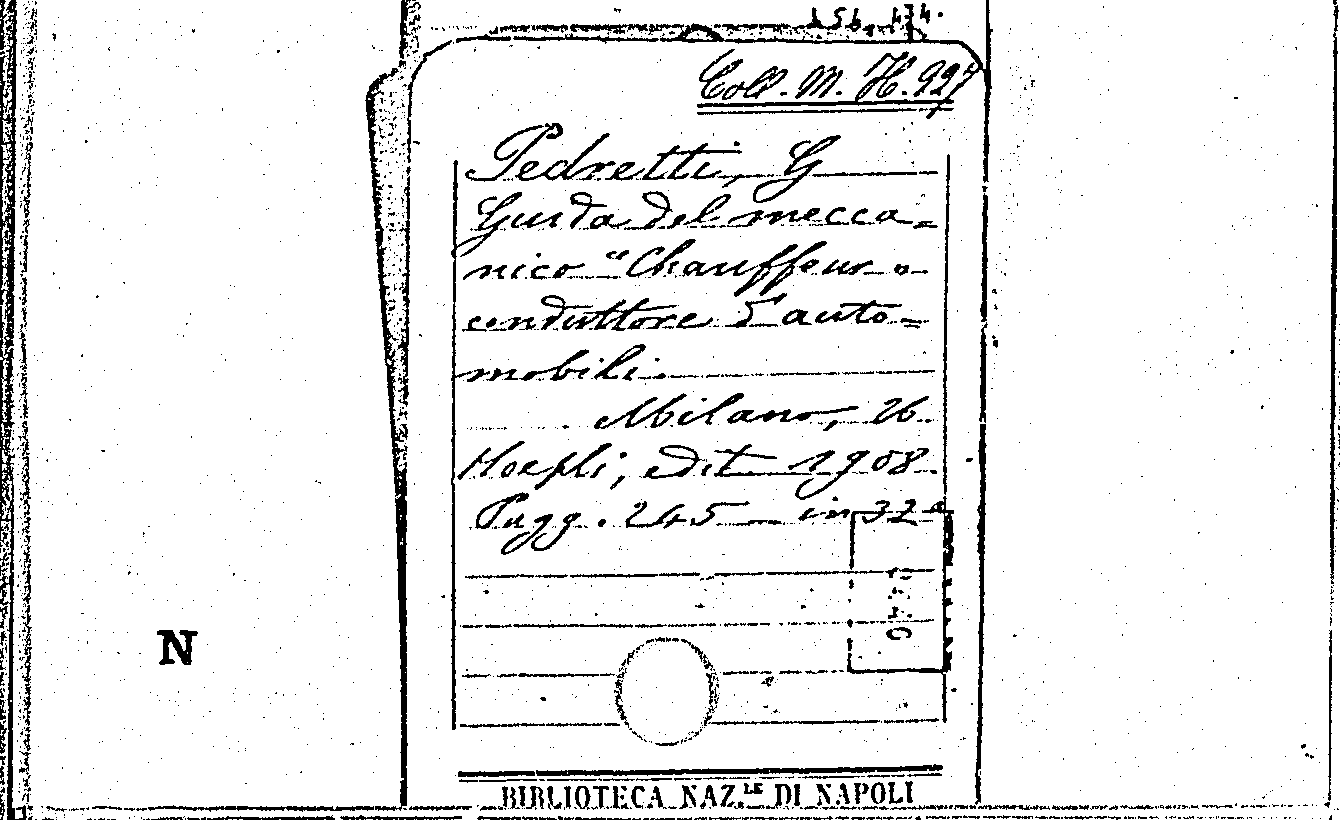 Coll. M. H. 927
Pedretti, G
Guida del mecca=
nico "Chauffeur"
conduttore d'auto=
mobili.
Milano, U.
Hoepli, edit 1908.
Pagg. 245 — in 32°
N
BIBLIOTECA NAZ.LE DI NAPOLI